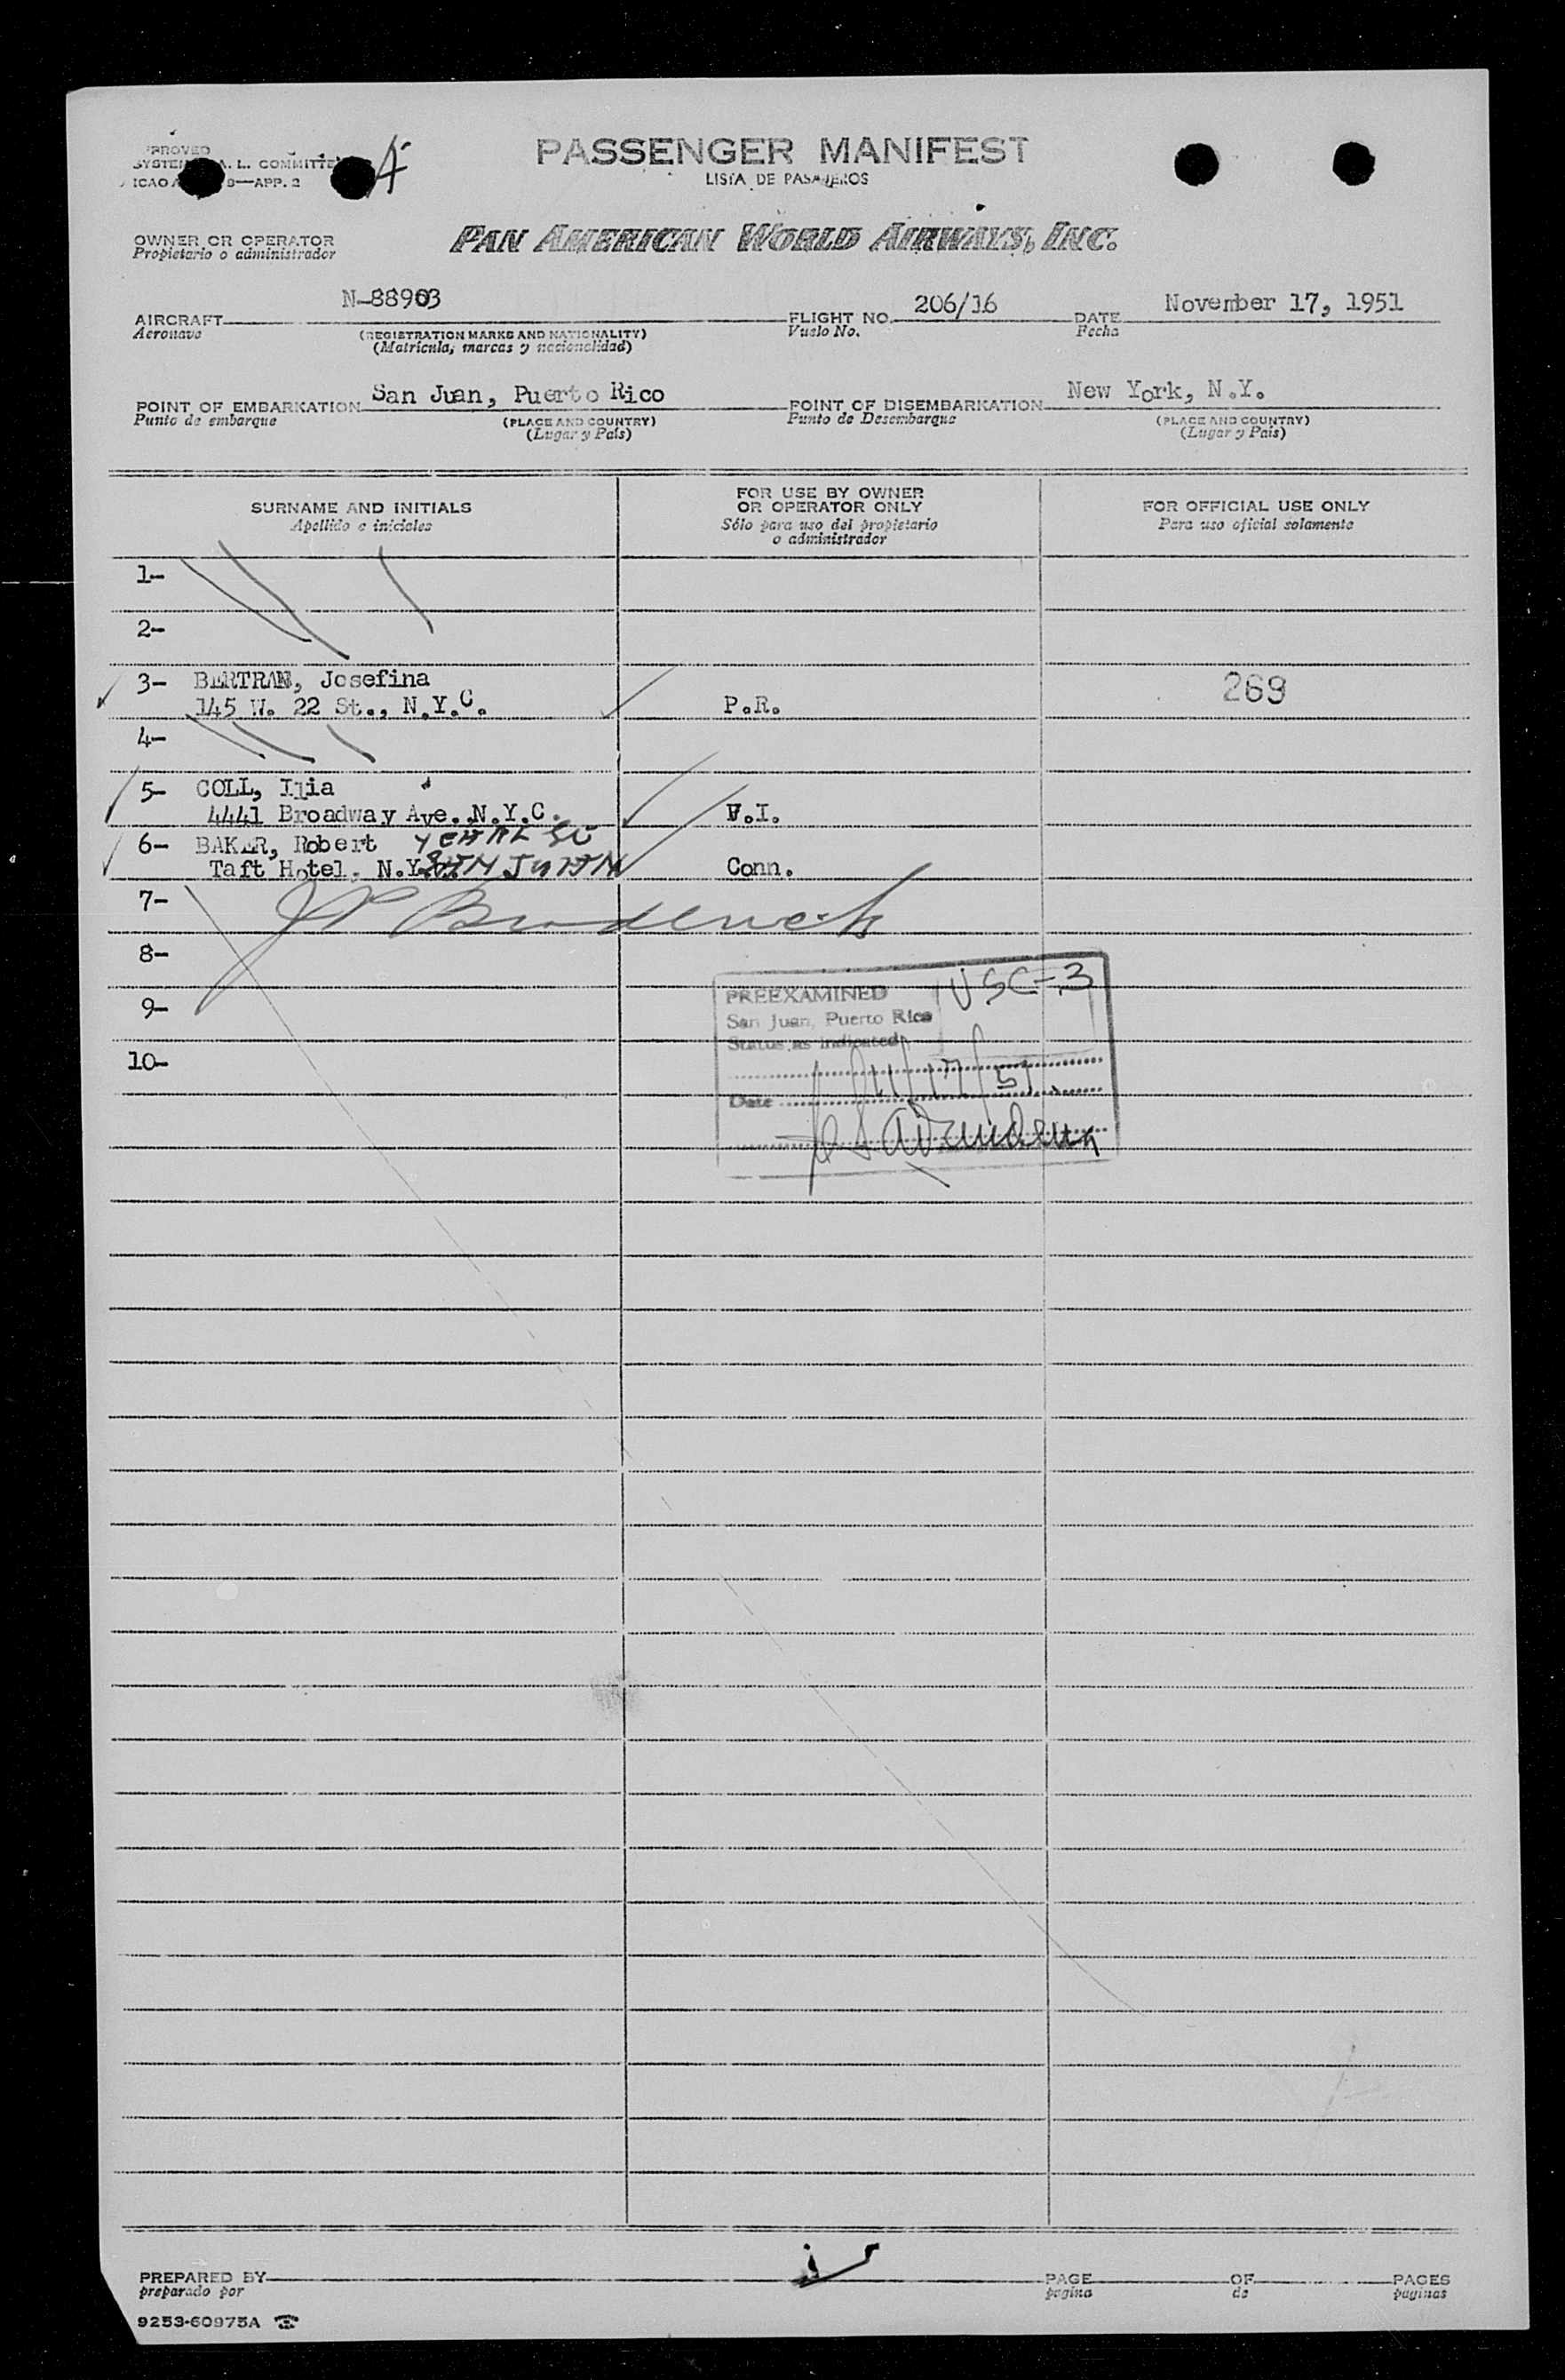 PROVED
A. L. COMMITTE
ICAO 9—APP. 2
PASSENGER MANIFEST
LISTA DE PASAJEROS
OWNER OR OPERATOR
Propietario o administrador
PAN AMERICAN WORLD AIRWAYS, INC.
AIRCRAFT N-88903 FLIGHT NO. 206/16 DATE November 17, 1951
Aeronave (REGISTRATION MARKS AND NATIONALITY) Vuelo No. Fecha
(Matrícula, marcas y nacionalidad)
POINT OF EMBARKATION San Juan, Puerto Rico POINT OF DISEMBARKATION New York, N.Y.
Punto de embarque (PLACE AND COUNTRY) Punto de Desembarque (PLACE AND COUNTRY)
(Lugar y País) (Lugar y País)
SURNAME AND INITIALS
Apellido e iniciales
FOR USE BY OWNER
OR OPERATOR ONLY
Sólo para uso del propietario
o administrador
FOR OFFICIAL USE ONLY
Para uso oficial solamente
1-
2-
3- BERTRAN, Josefina 269
145 W. 22 St., N.Y.C. P.R.
4-
5- COLL, Ilia
4441 Broadway Ave. N.Y.C. V.I.
6- BAKER, Robert
Taft Hotel, N.Y. SAN JUAN Conn.
7-
8-
9-
10-
PREEXAMINED USC-3
San Juan, Puerto Rico
Status as indicated
Date 11/17/51
PREPARED BY PAGE OF PAGES
preparado por pagina de paginas
9253-60975A